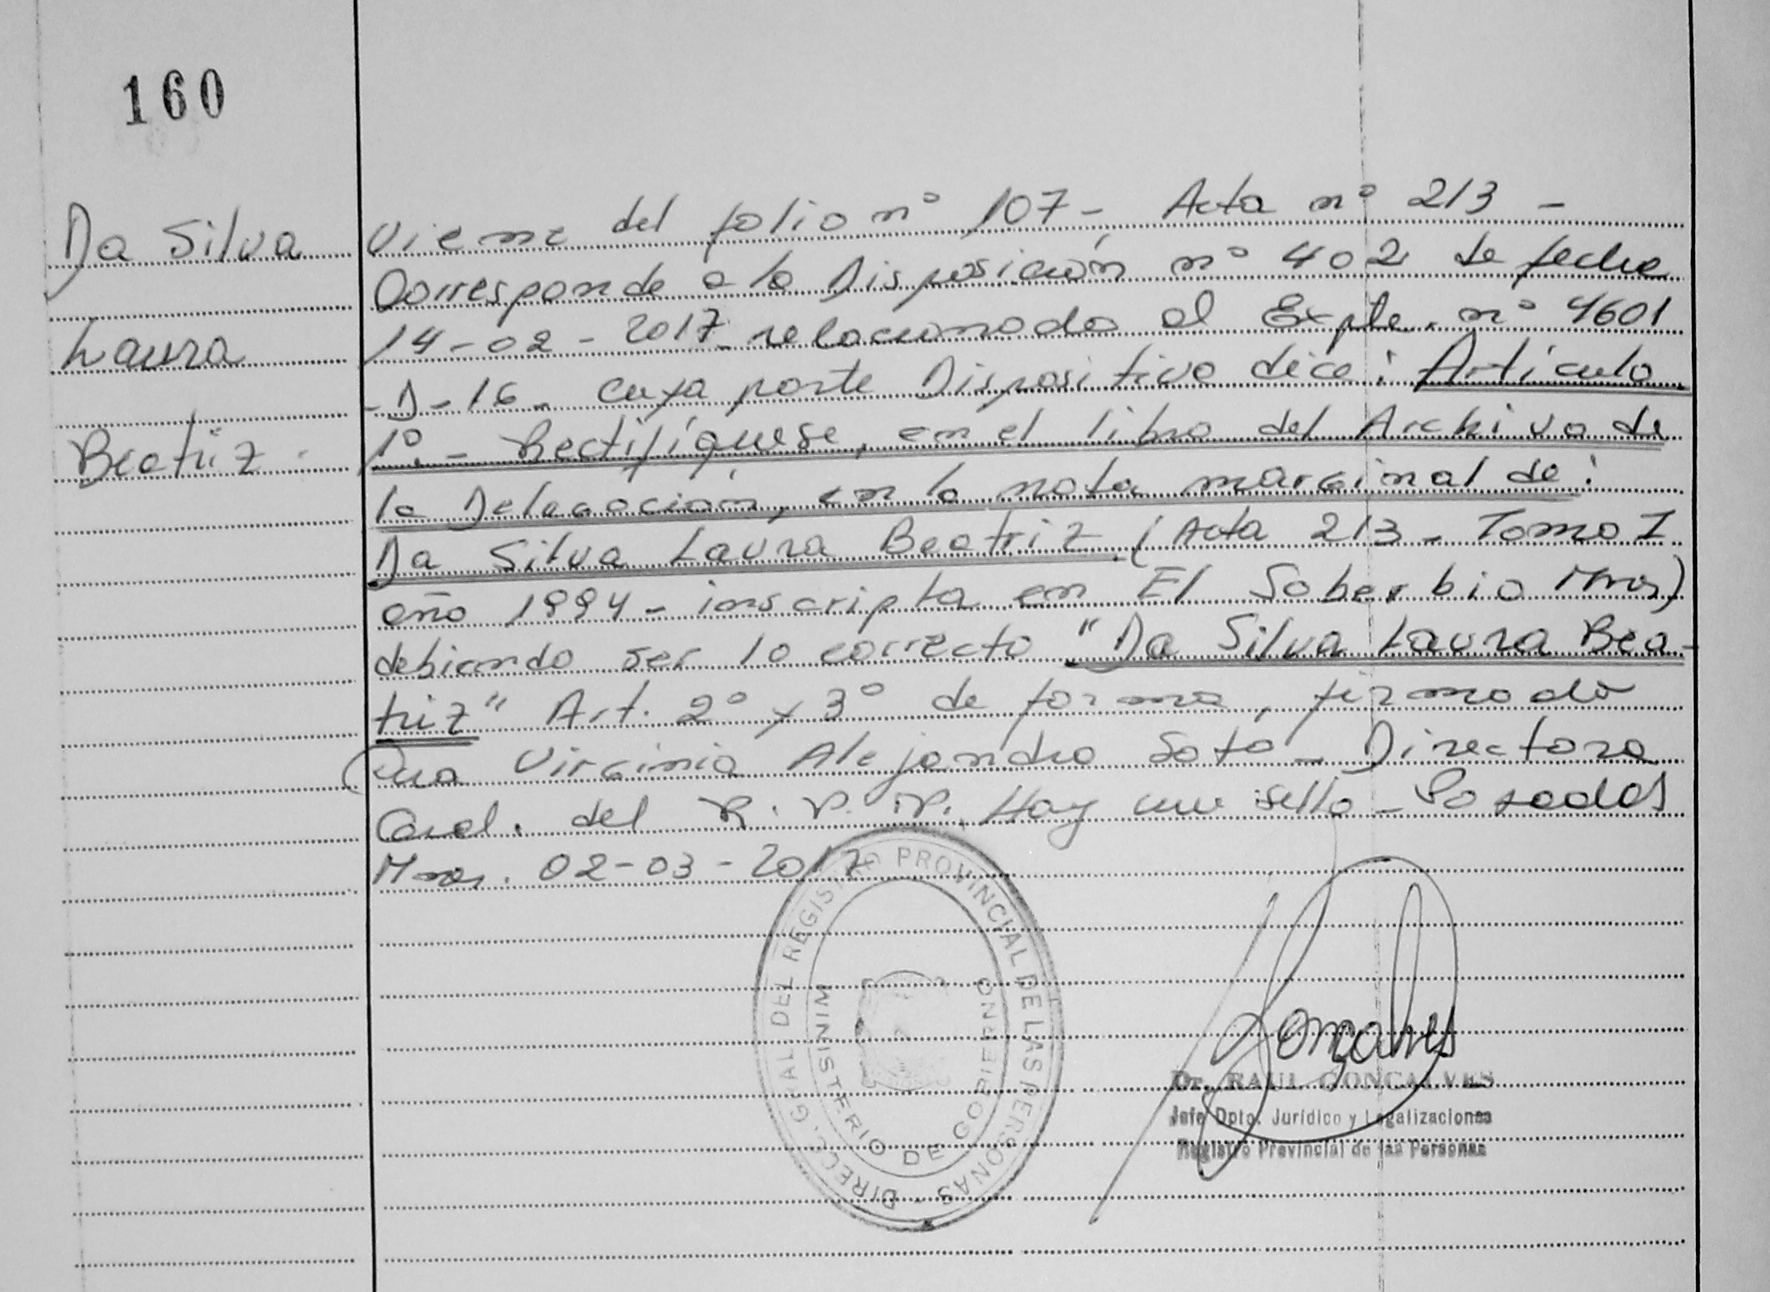 160
Da Silva
Laura
Beatriz
Viene del folio nº 107 - Acta nº 213 -
Corresponde a la Disposición nº 402 de fecha
14-02-2017 relacionado al Expte. nº 4601
-D-16- cuya parte Dispositiva dice: Artículo
1º.- Rectifíquese, en el libro del Archivo de
la Delegación, en la nota marginal de:
Da Silva Laura Beatriz (Acta 213 - Tomo I
año 1994 - inscripta en El Soberbio Mnes)
debiendo ser lo correcto "Da Silva Laura Bea-
triz" Art. 2º y 3º de forma, firmado
Dra Virginia Alejandra Soto - Directora
Gral. del R. P. P. Hay un sello - Posadas
Mnes. 02-03-2017
DIRECC. GRAL DEL REGISTRO PROVINCIAL DE LAS PERSONAS -
MINISTERIO DE GOBIERNO
Goncalves
Dr. RAUL GONCALVES
Jefe Dpto. Jurídico y Legalizaciones
Registro Provincial de las Personas